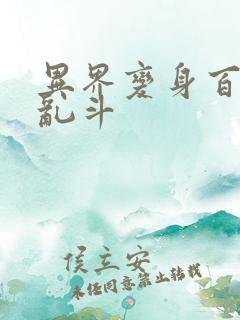 異界變身百
亂斗
侯立安
未经同意禁止转载